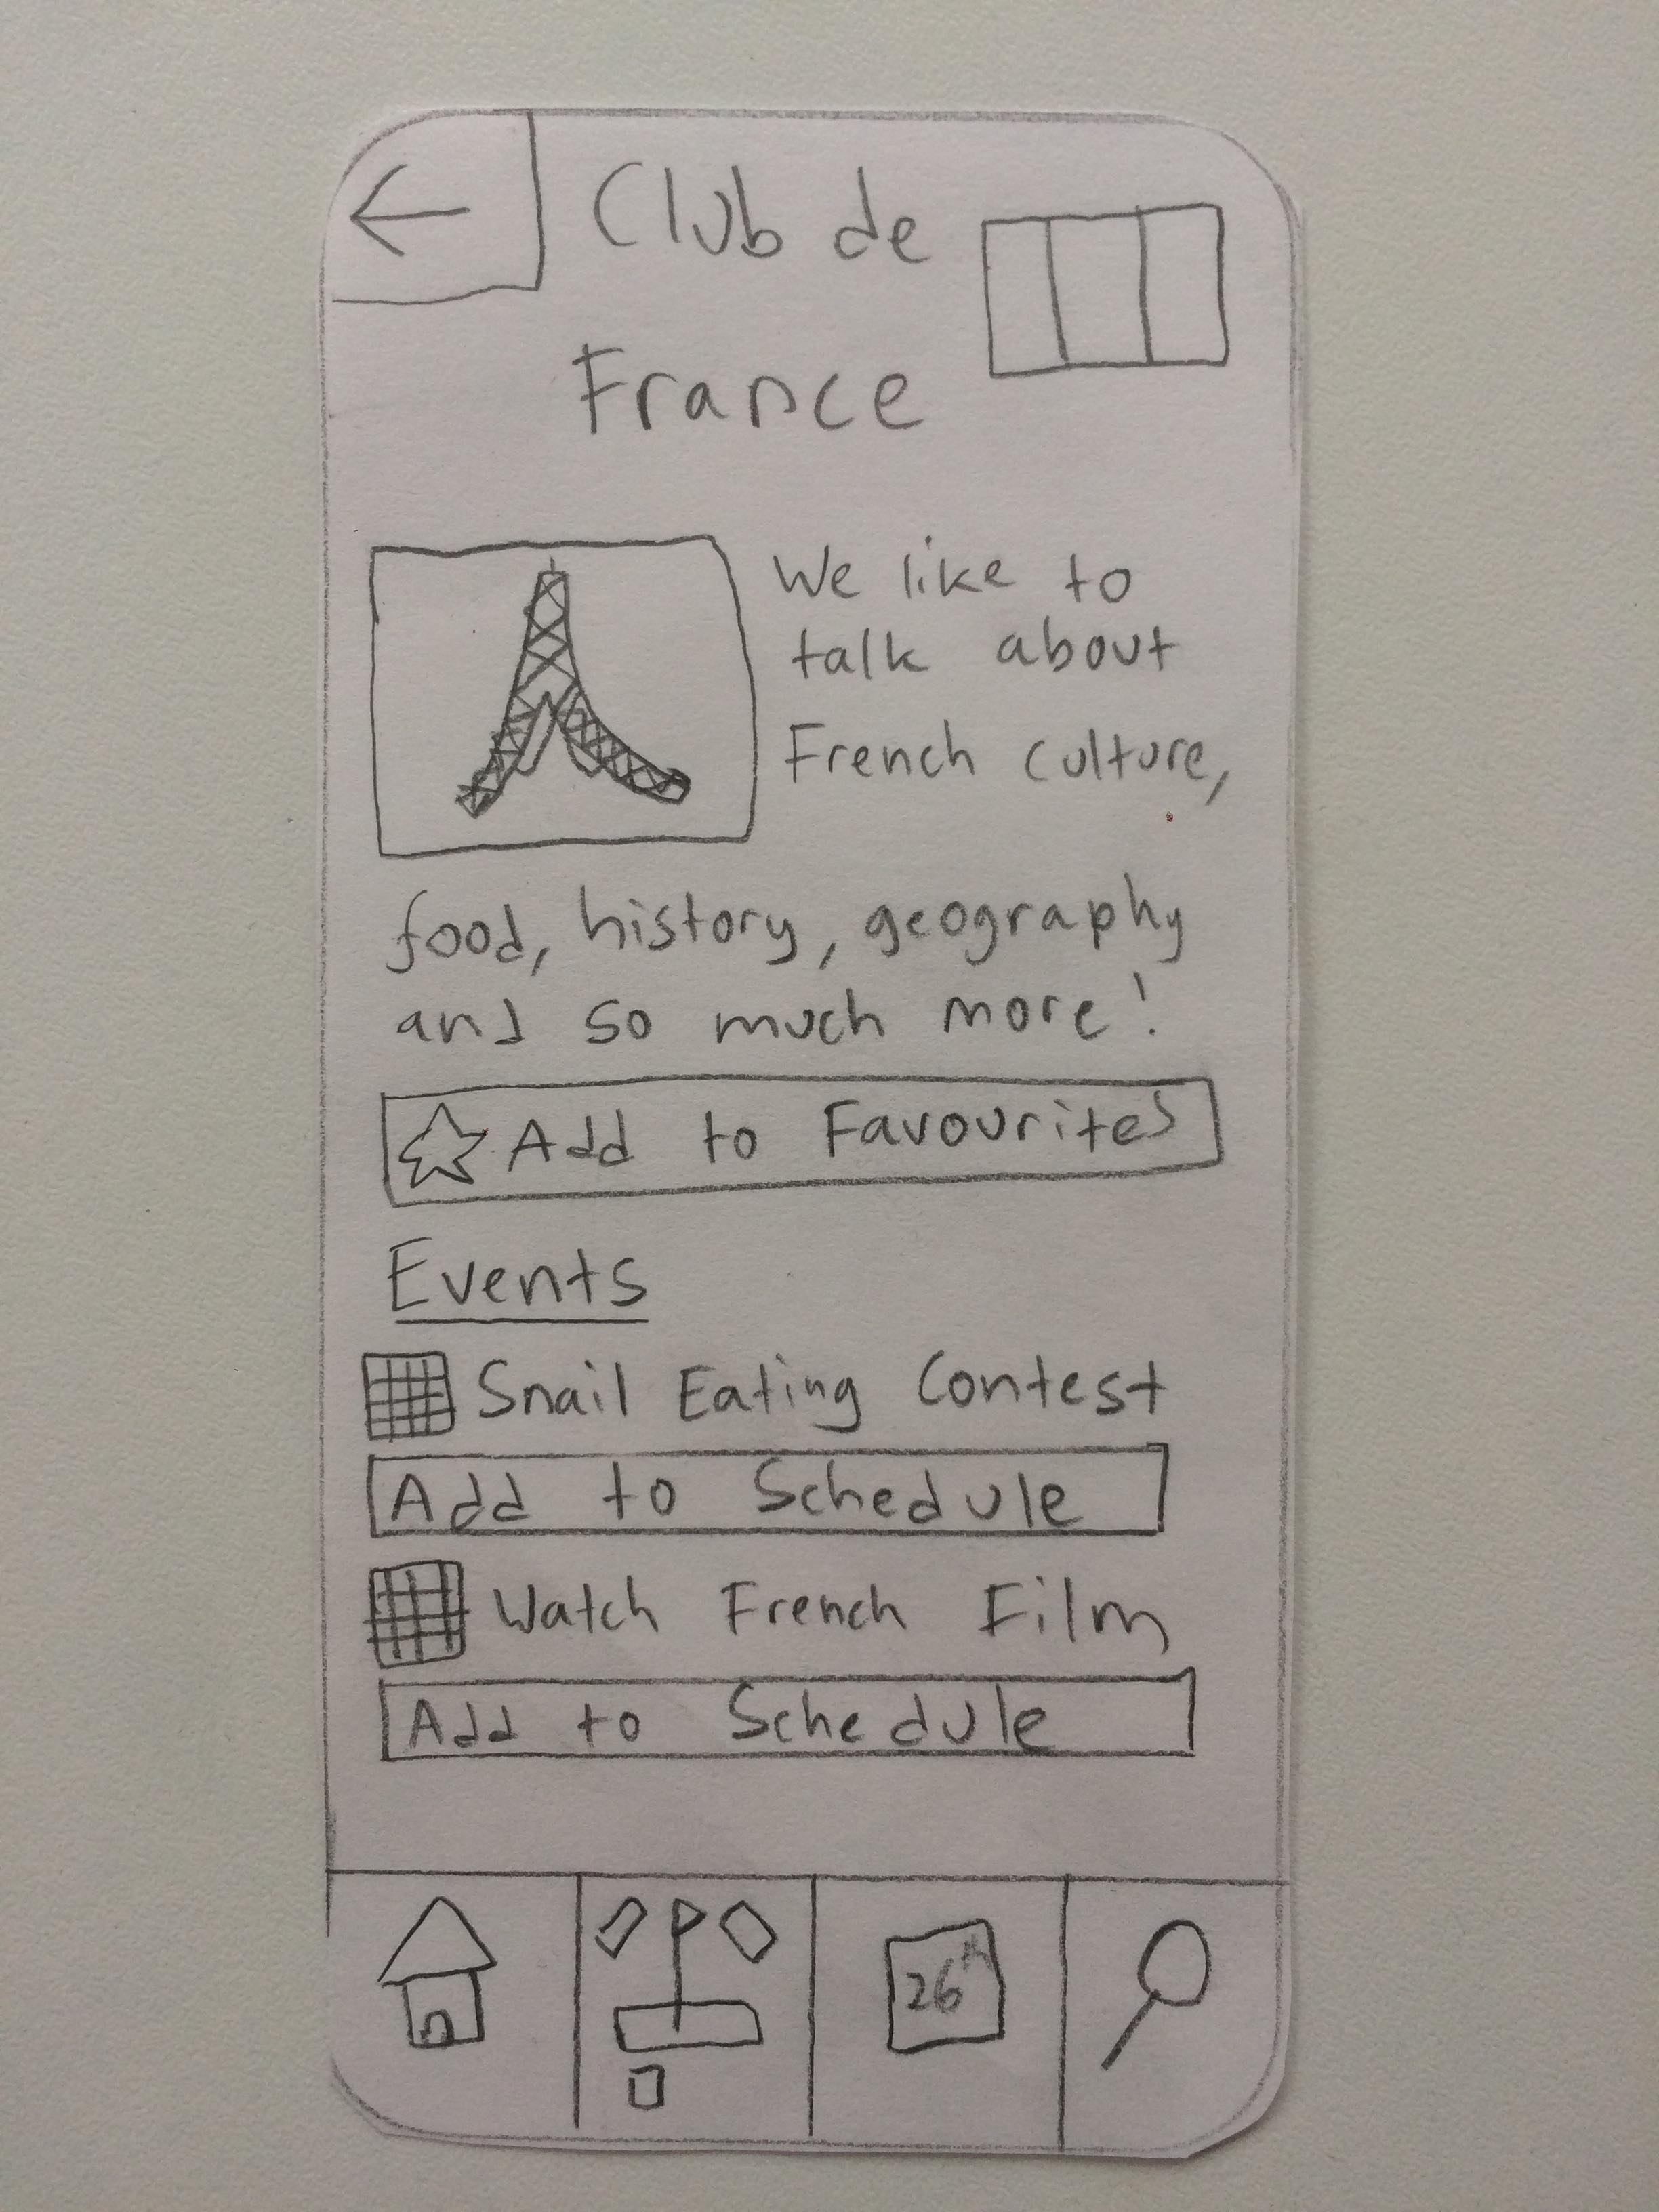 Club de
France
We like to
talk about
French culture,
food, history, geography
and so much more!
Add to Favourites
Events
Snail Eating Contest
Add to Schedule
Watch French Film
Add to Schedule
26th